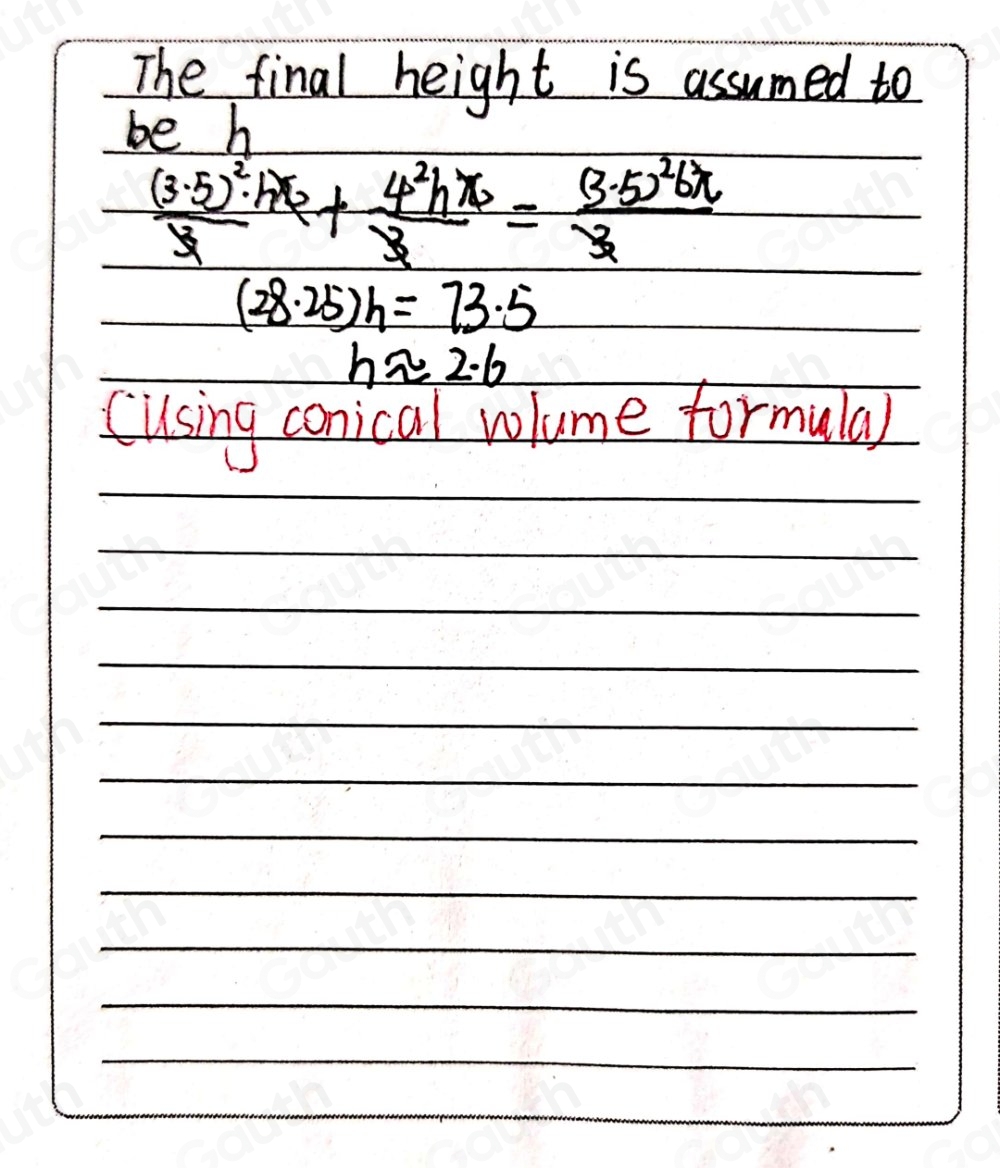 The final height is assumed to
be h
(3·5)²·hπ/3 + 4²hπ/3 = (3·5)²6π/3
(28·25)h = 73·5
h ≈ 2·6
(Using conical volume formula)